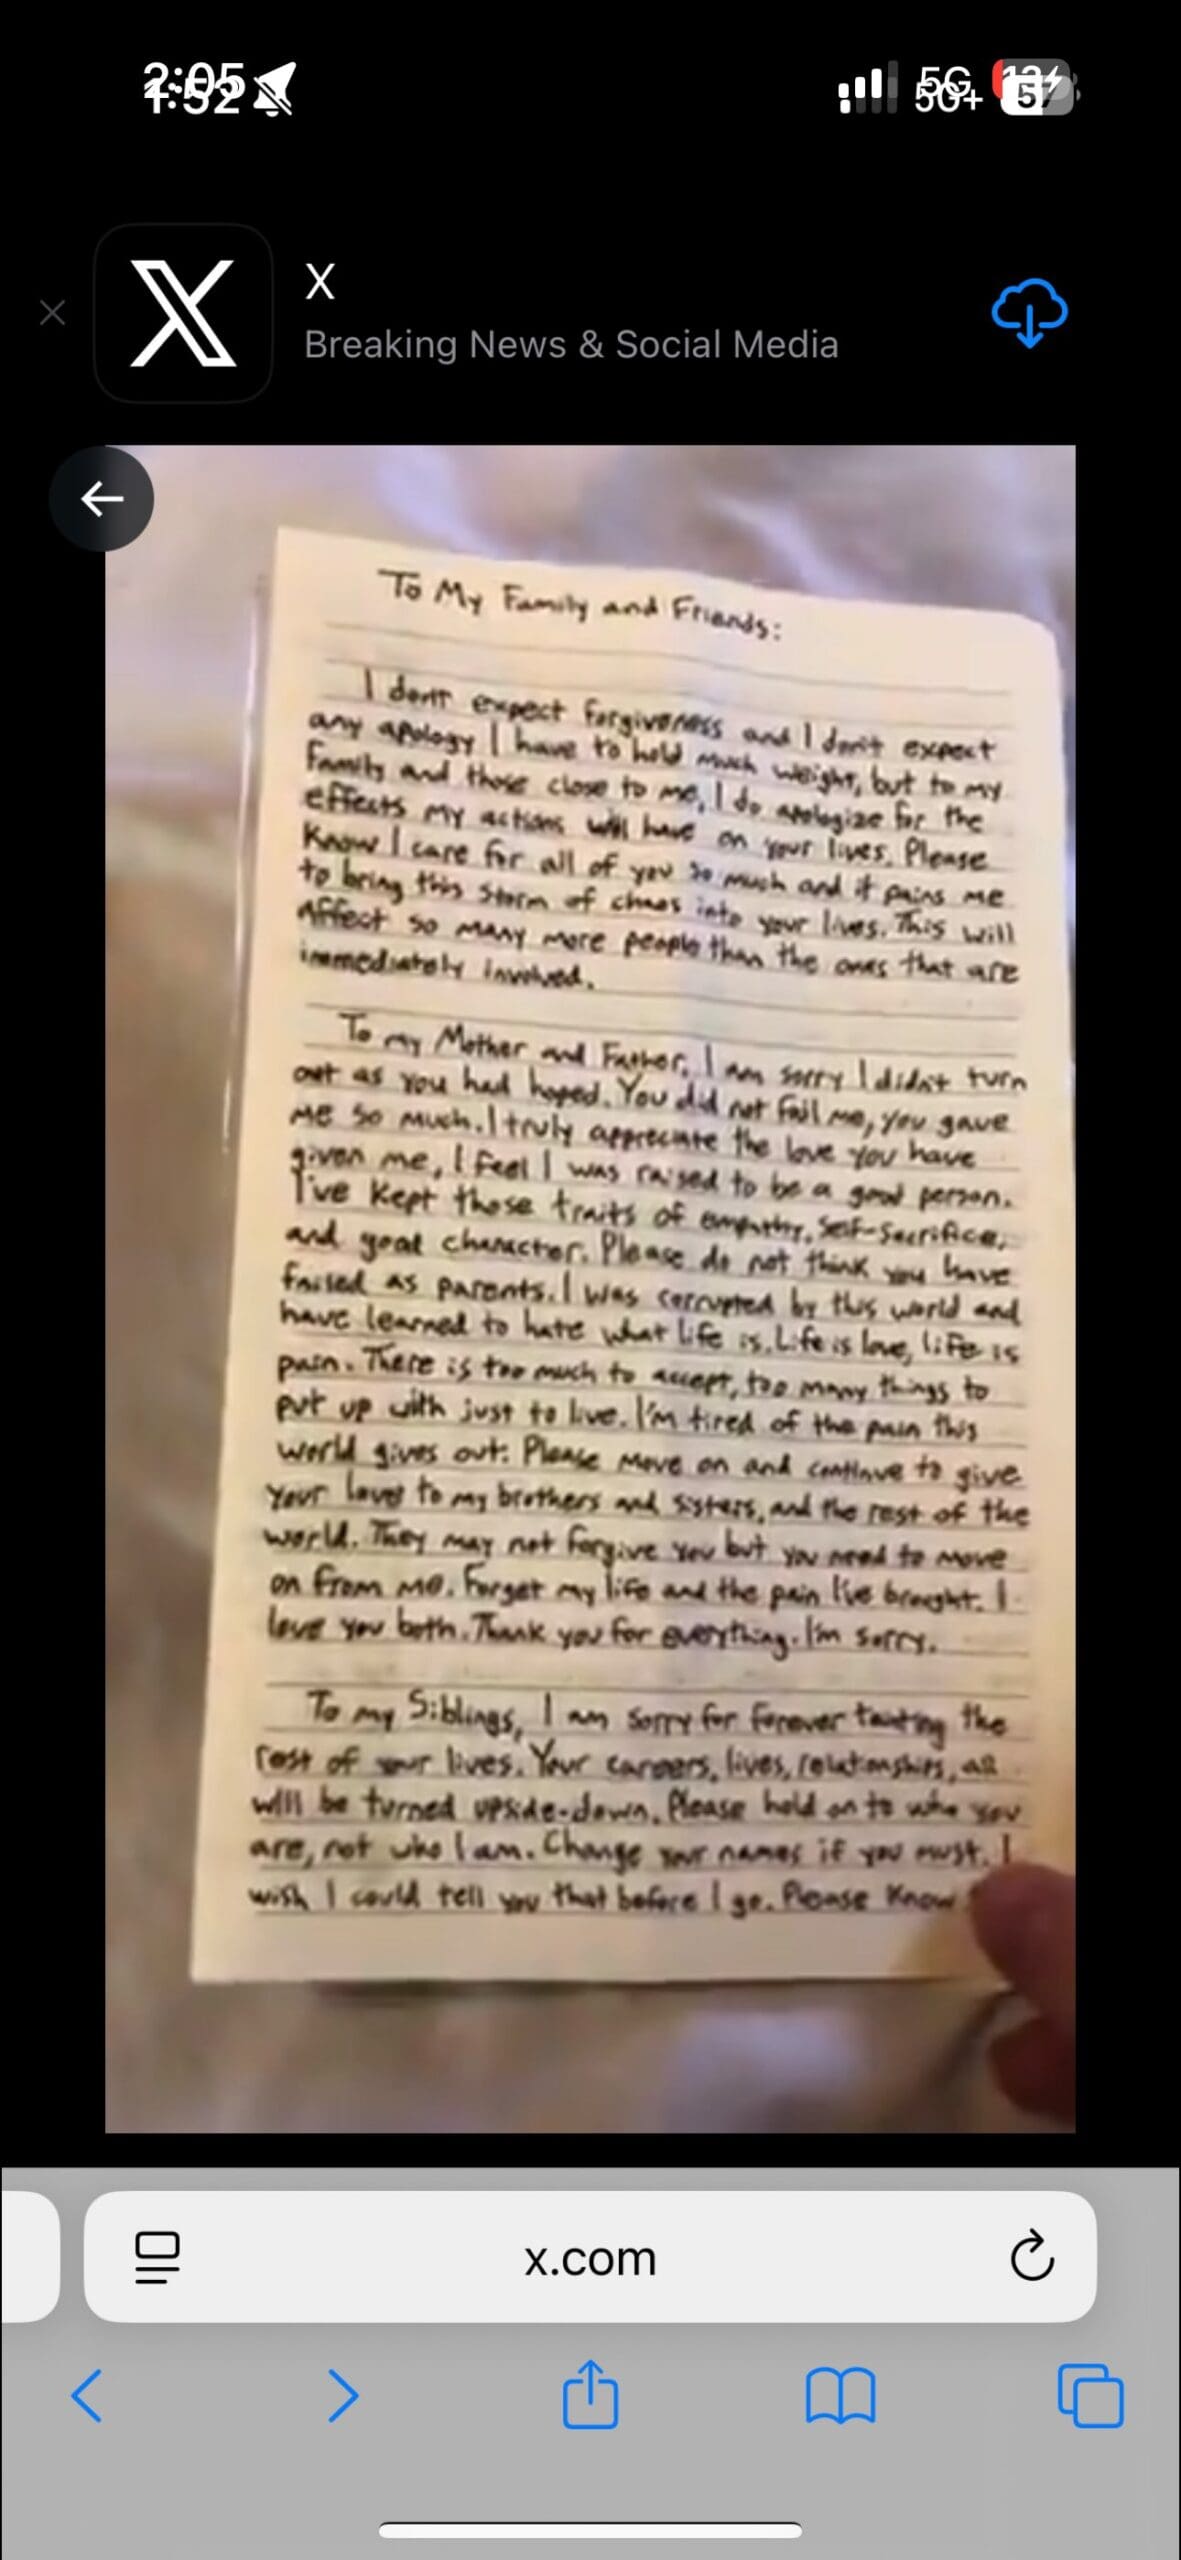 X
Breaking News & Social Media
To My Family and Friends:
I don't expect forgiveness and I don't expect
any apology I have to hold much weight, but to my
family and those close to me, I do apologize for the
effects my actions will have on your lives. Please
Know I care for all of you so much and it pains me
to bring this storm of chaos into your lives. This will
Affect so many more people than the ones that are
immediately involved.
To my Mother and Father, I am sorry I didn't turn
out as you had hoped. You did not fail me, you gave
me so much. I truly appreciate the love you have
given me, I feel I was raised to be a good person.
I've kept those traits of empathy, self-sacrifice,
and good character. Please do not think you have
failed as parents. I was corrupted by this world and
have learned to hate what life is. Life is love, life is
pain. There is too much to accept, too many things to
put up with just to live. I'm tired of the pain this
world gives out. Please move on and continue to give
your love to my brothers and sisters, and the rest of the
world. They may not forgive you but you need to move
on from me. Forget my life and the pain I've brought. I
love you both. Thank you for everything. I'm sorry.
To my Siblings, I am sorry for forever the
rest of your lives. Your careers, lives, relationships, all
will be turned upside-down. Please hold on to who you
are, not who I am. Change your names if you must. I
wish I could tell you that before I go. Please Know
x.com